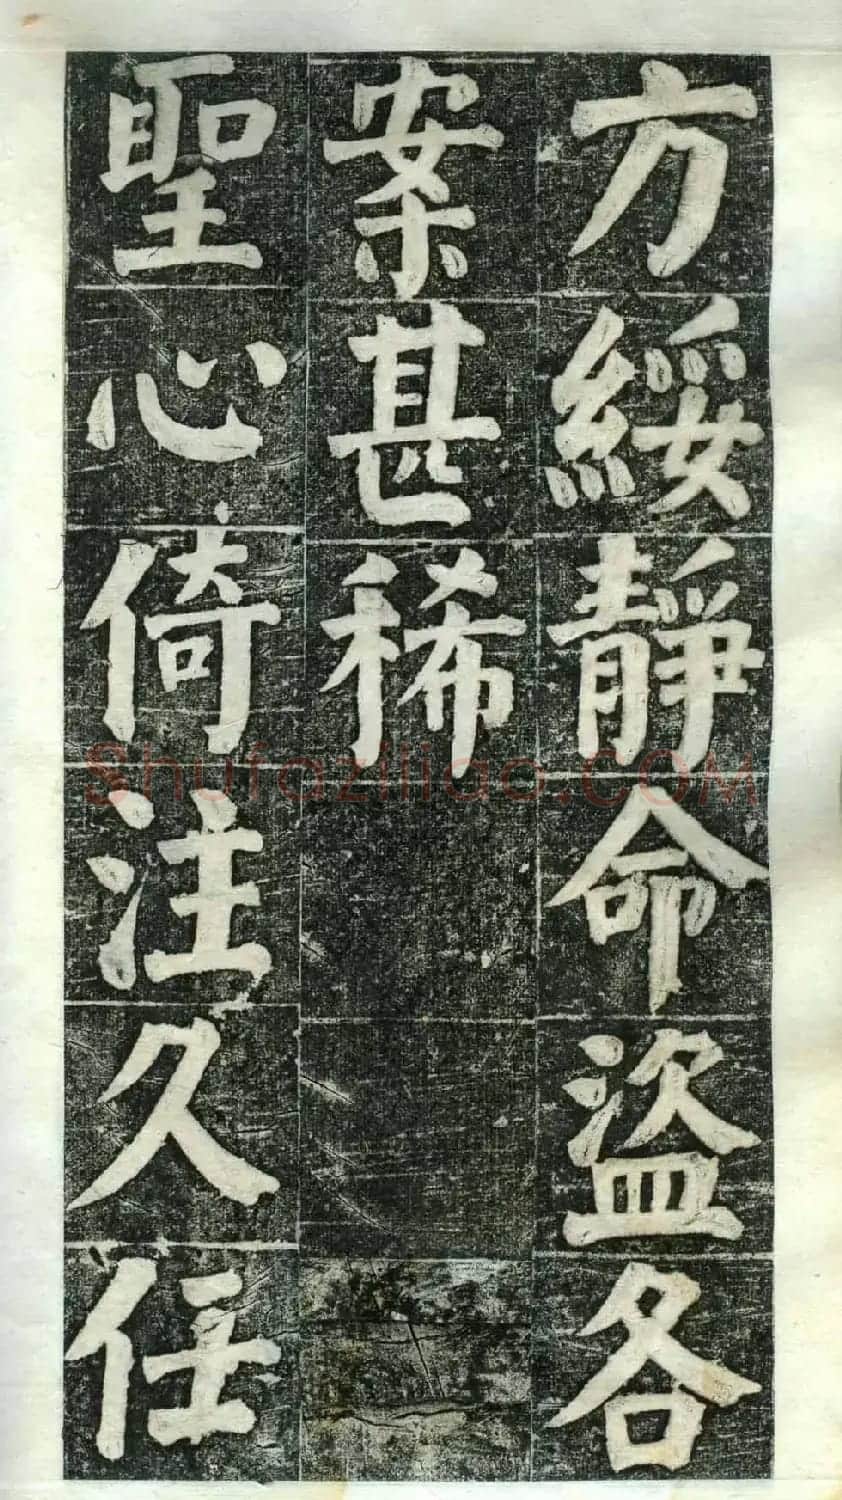 方綏靜命盜各
案甚稀
聖心倚注久任
Shufaziliao.COM